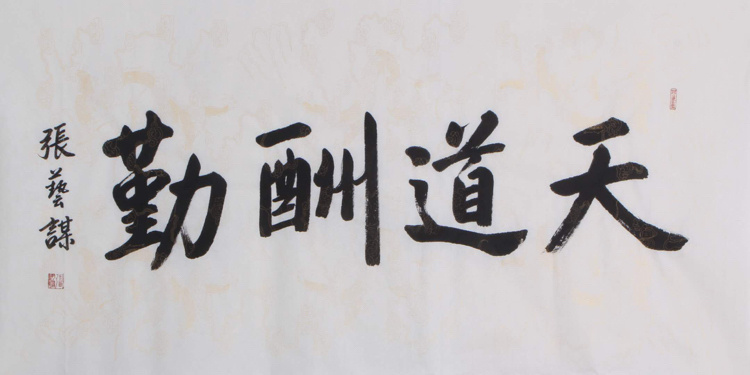 天道酬勤
張藝謀